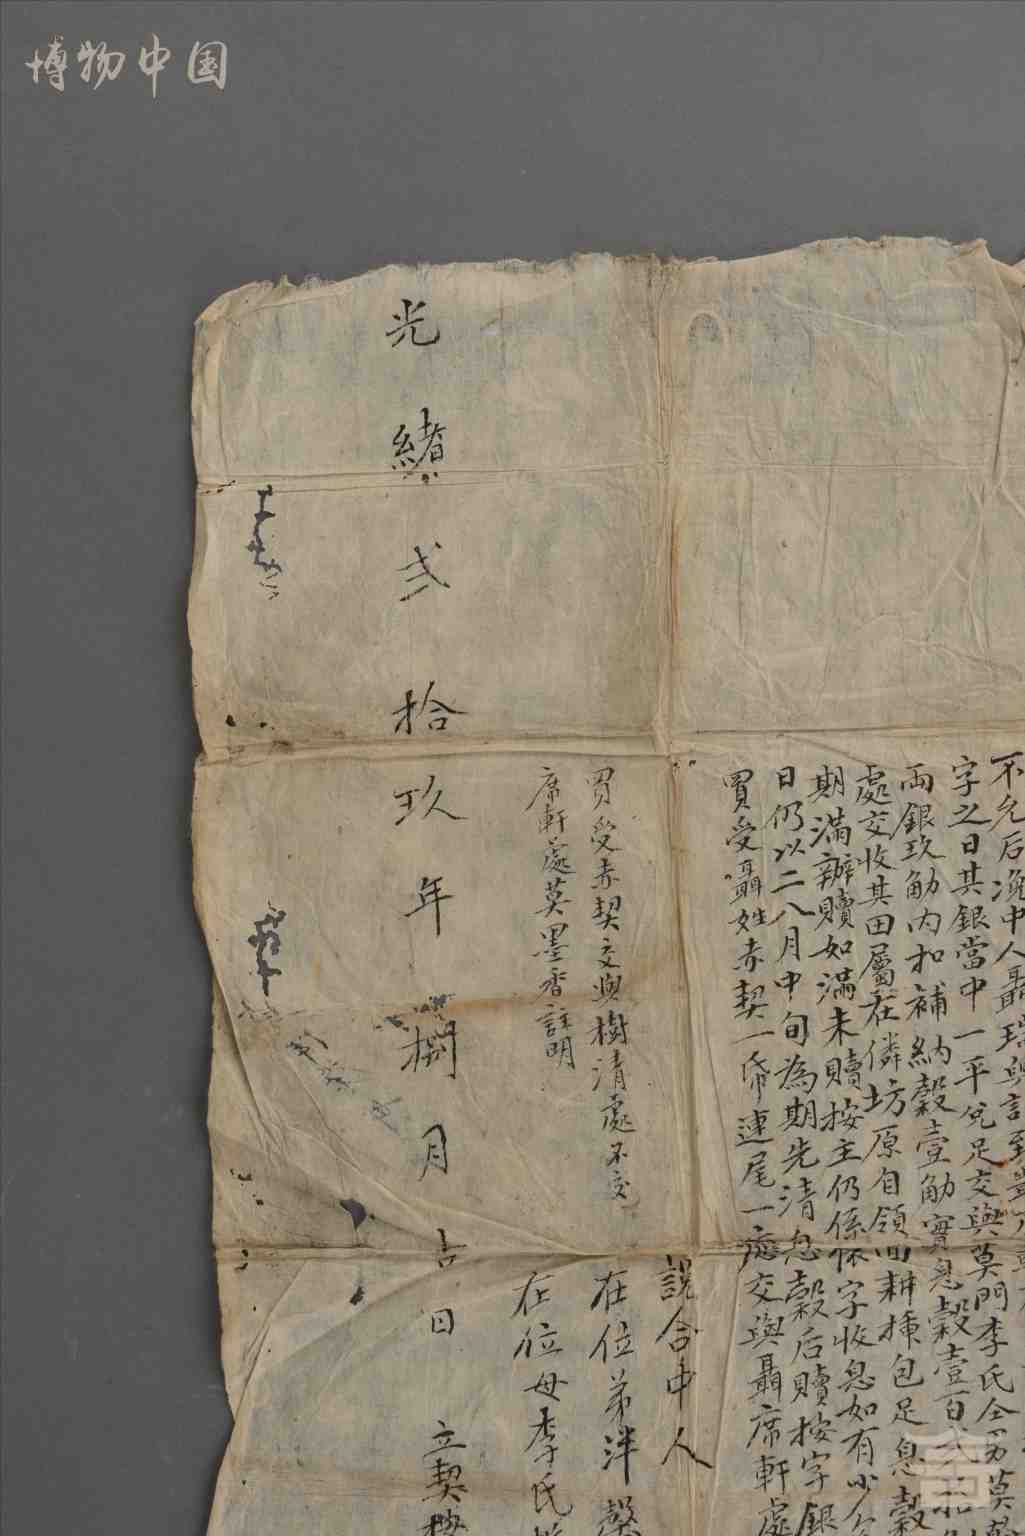 博物中国
不允后浼中人聶瑞與言到
字之日其銀當中一平兌足交與莫門李氏仝男莫
兩銀玖觔内扣補納穀壹觔實息穀壹百
處交收其田屬在僯坊原自領回耕揷包足息穀
期滿辦贖如滿未贖按主仍係依字收息如有少
日仍以二八月中旬為期先清息穀后贖按字銀
買受聶姓赤契一帋連尾一處交與聶席軒處
說合中人
買受赤契交與樹清處不交
席軒處莫墨香註明
在位弟泮
在位母李氏
光緖弍拾玖年捌月吉日 立契